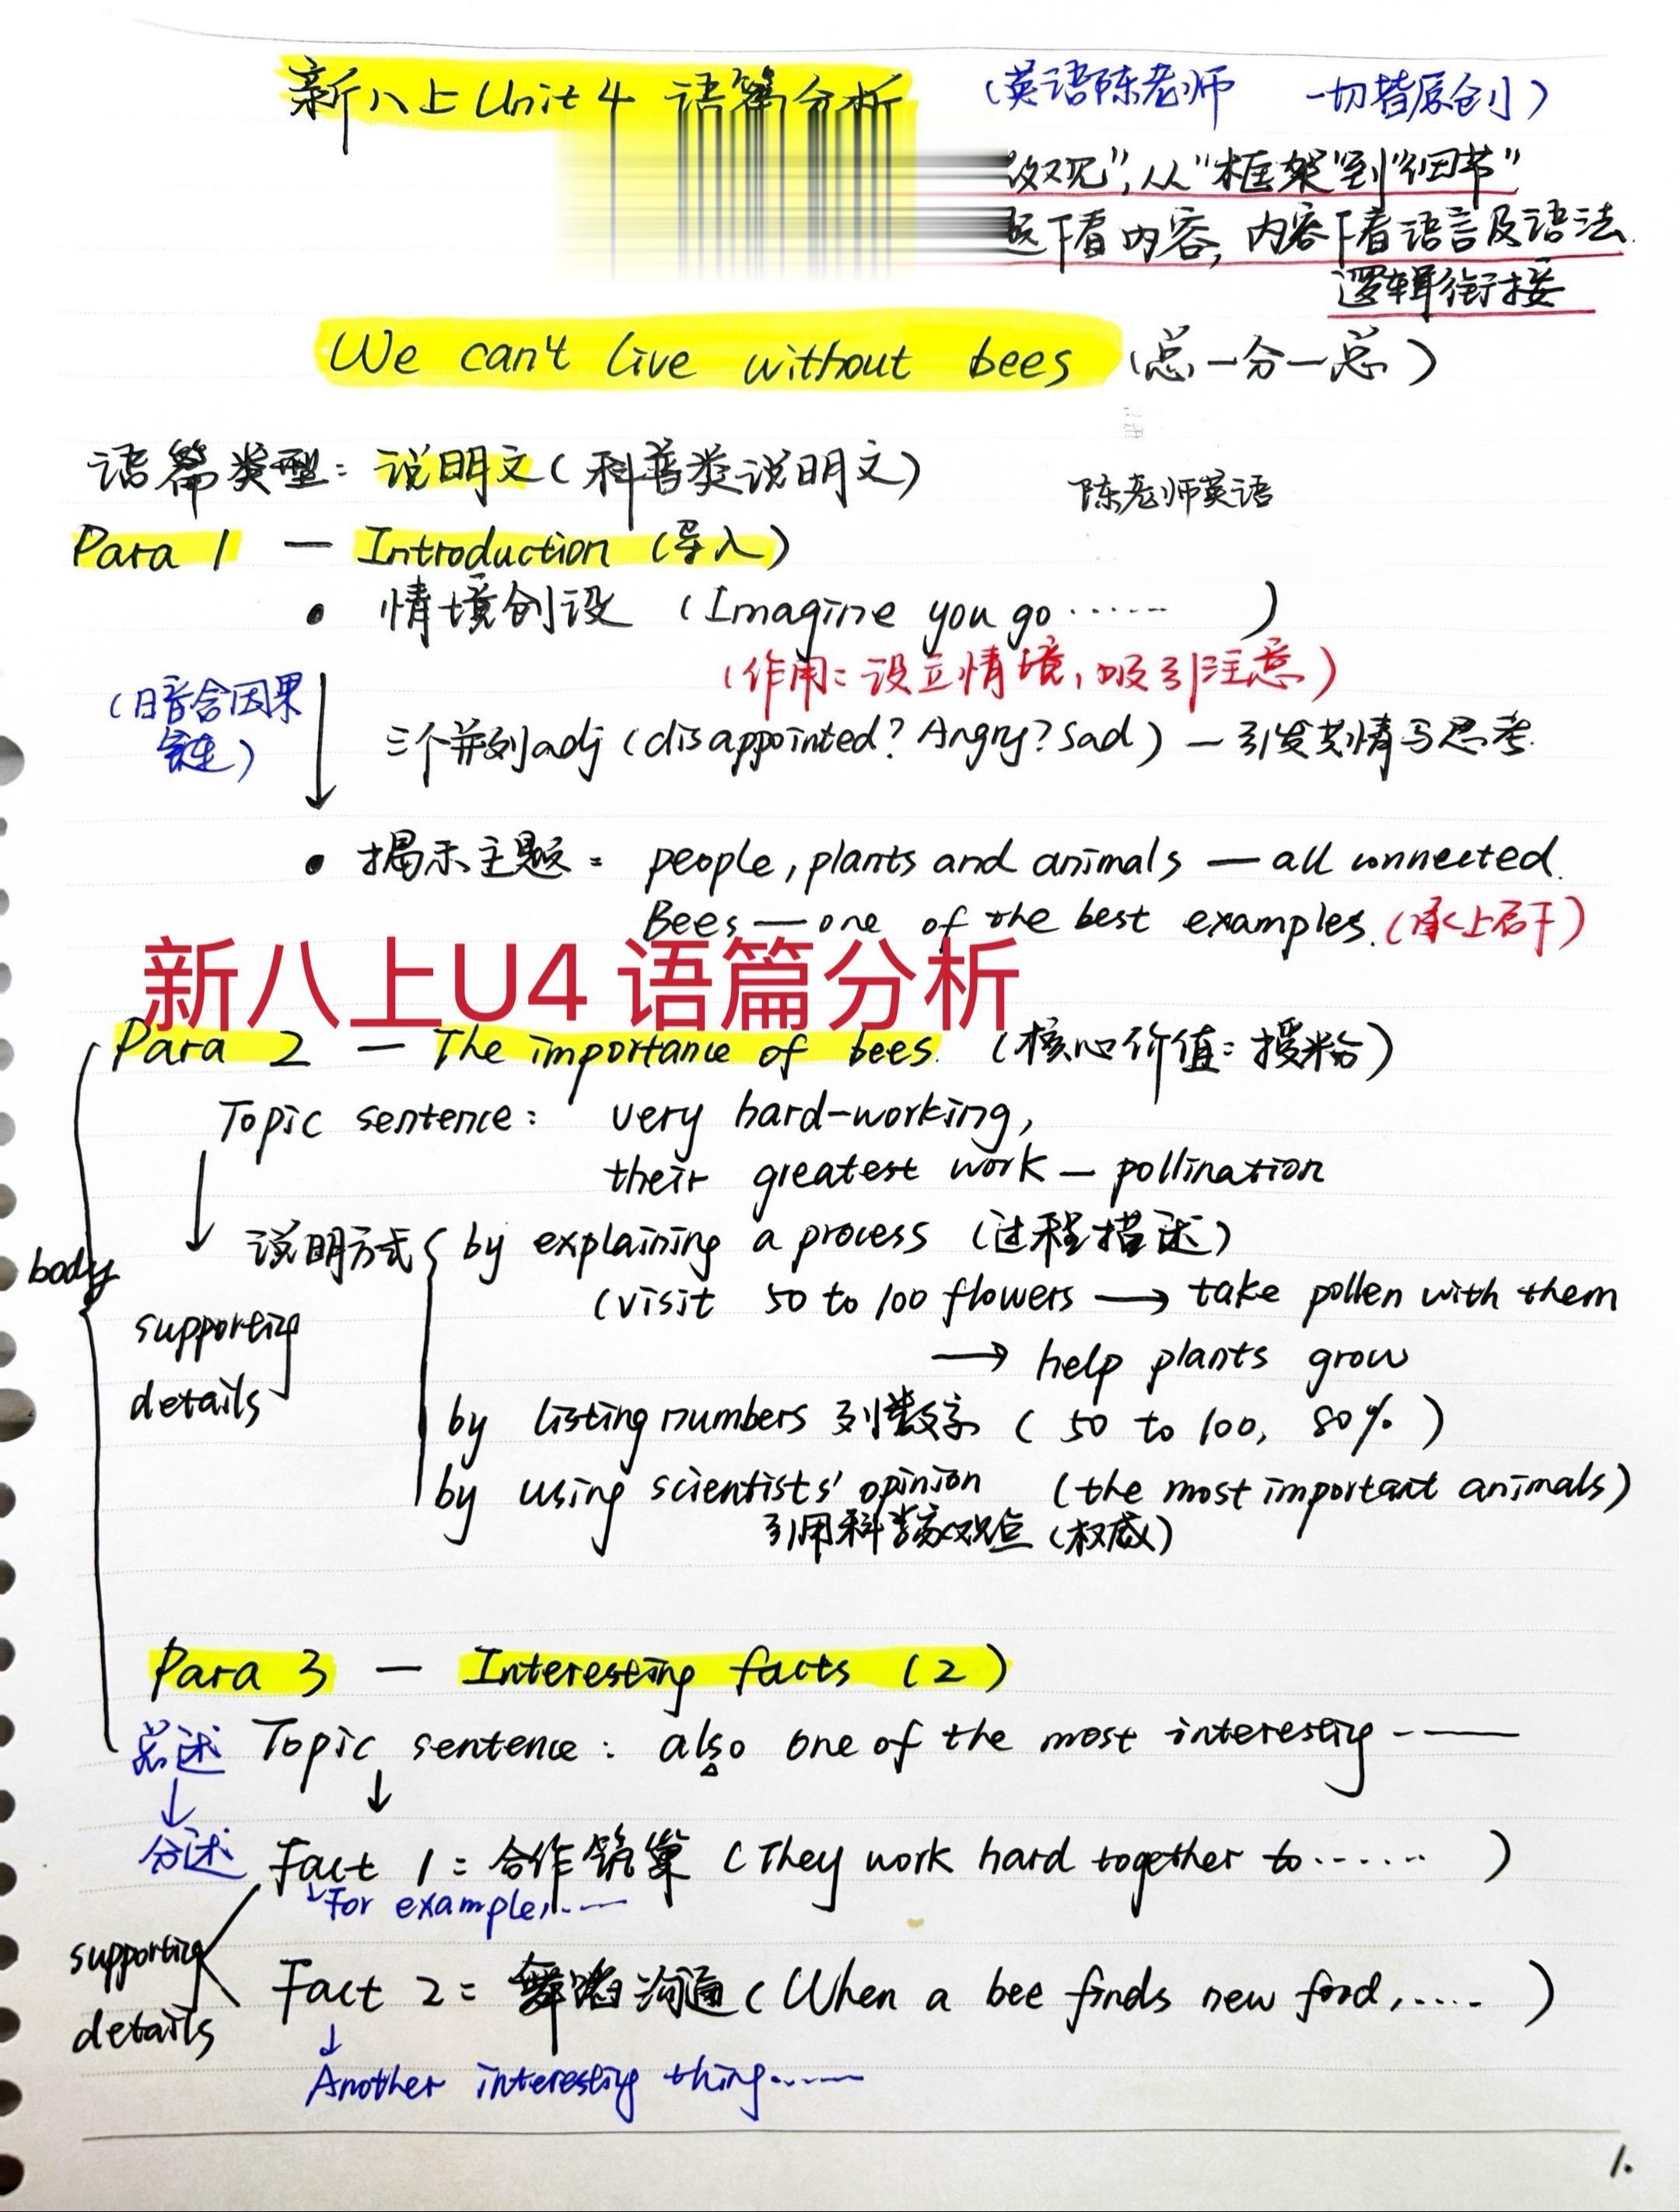 新八上Unit 4 语篇分析 (英语陈老师 一切皆原创)
”,从“框架”到“细节”
下看内容,内容下看语言及语法.
逻辑衔接
We can't live without bees (总—分—总)
语篇类型:说明文(科普类说明文)
陈老师英语
Para 1 — Introduction (导入)
• 情境创设 (Imagine you go ...... )
(作用:设立情境,吸引注意)
(暗含因果
链)
三个并列adj (disappointed? Angry? Sad) — 引发共情与思考.
• 揭示主题: people, plants and animals — all connected.
Bees — one of the best examples. (承上启下)
新八上U4 语篇分析
Para 2 — The importance of bees. (核心价值:授粉)
Topic sentence: very hard-working,
their greatest work — pollination
说明方式 { by explaining a process (过程描述)
body
(visit 50 to 100 flowers → take pollen with them
supporting
→ help plants grow
details
by listing numbers 列数字 ( 50 to 100, 80% )
by using scientists' opinion (the most important animals)
引用科学家观点 (权威)
Para 3 — Interesting facts (2)
总述 Topic sentence: also one of the most interesting ------
↓
分述 Fact 1: 合作筑巢 (They work hard together to ...... )
For example, ......
supporting
details
Fact 2: 舞蹈沟通 (When a bee finds new food, ..... )
↓
Another interesting thing ......
1.